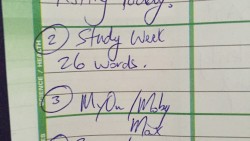 Today.
② Study Week
26 words.
③ MyOn / Moby
Max
SCIENCE / HEALTH